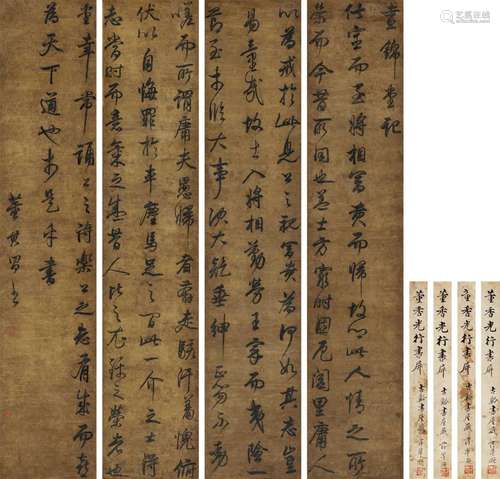 晝錦堂記
仕宦而至將相富貴而歸故鄉此人情之所
榮而今昔所同也蓋士方窮時困厄閭里庸人
以為戒於此見公之視富貴為何如其志豈
易量哉故出入將相勤勞王家而夷險一
節至於臨大事決大議垂紳正笏不動
嗟而所謂庸夫愚婦者奔走駭汗羞愧俯
伏以自悔罪於車塵馬足之間此一介之士得
志當時而意氣之盛昔人比之衣錦之榮者也
堂幸常誦公之詩樂公之志有成而喜
為天下道也於是乎書
董其昌書
董香光行書屏
董香光行書屏
董香光行書屏
董香光行書屏